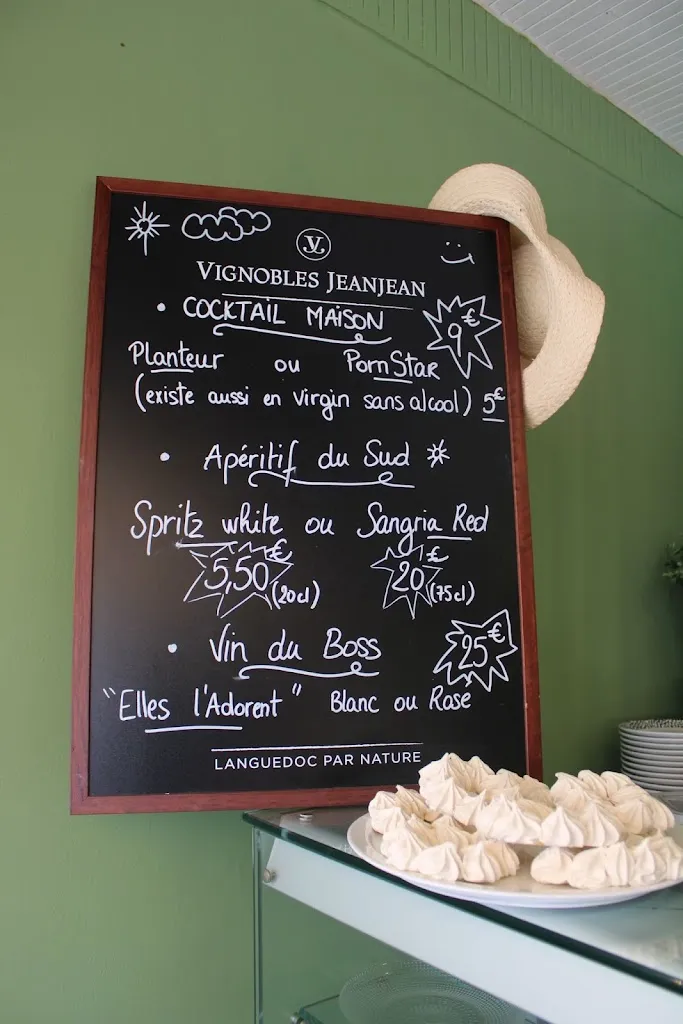 VJ
VIGNOBLES JEANJEAN
• COCKTAIL MAISON 9€
Planteur ou PornStar
(existe aussi en virgin sans alcool) 5€
• Apéritif du Sud
Spritz white ou Sangria Red
5,50€ (20cl) 20€ (75cl)
• Vin du Boss 25€
"Elles l'Adorent" Blanc ou Rosé
LANGUEDOC PAR NATURE